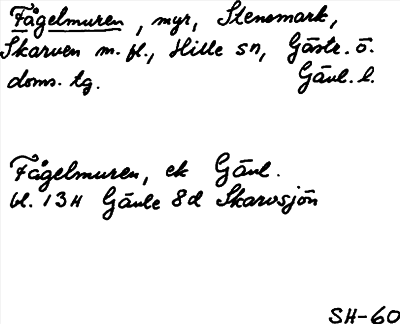 Fågelmuren, myr, Stensmark,
Skarven m. fl., Hille sn, Gästr. ö.
doms. tg. Gävl. l.
Fågelmuren, ek Gävl.
bl. 13H Gävle 8d Skarvsjön
SH-60